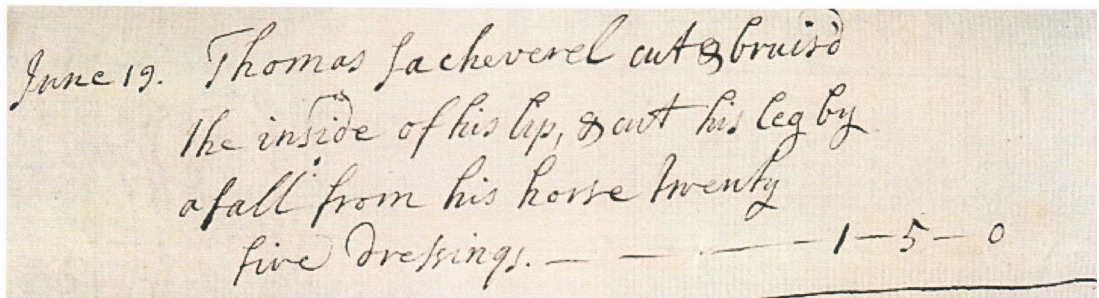 June 19. Thomas Sacheverel cut & bruis'd
the inside of his lip, & cut his leg by
a fall from his horse twenty
five dressings. — — — — 1 — 5 — 0